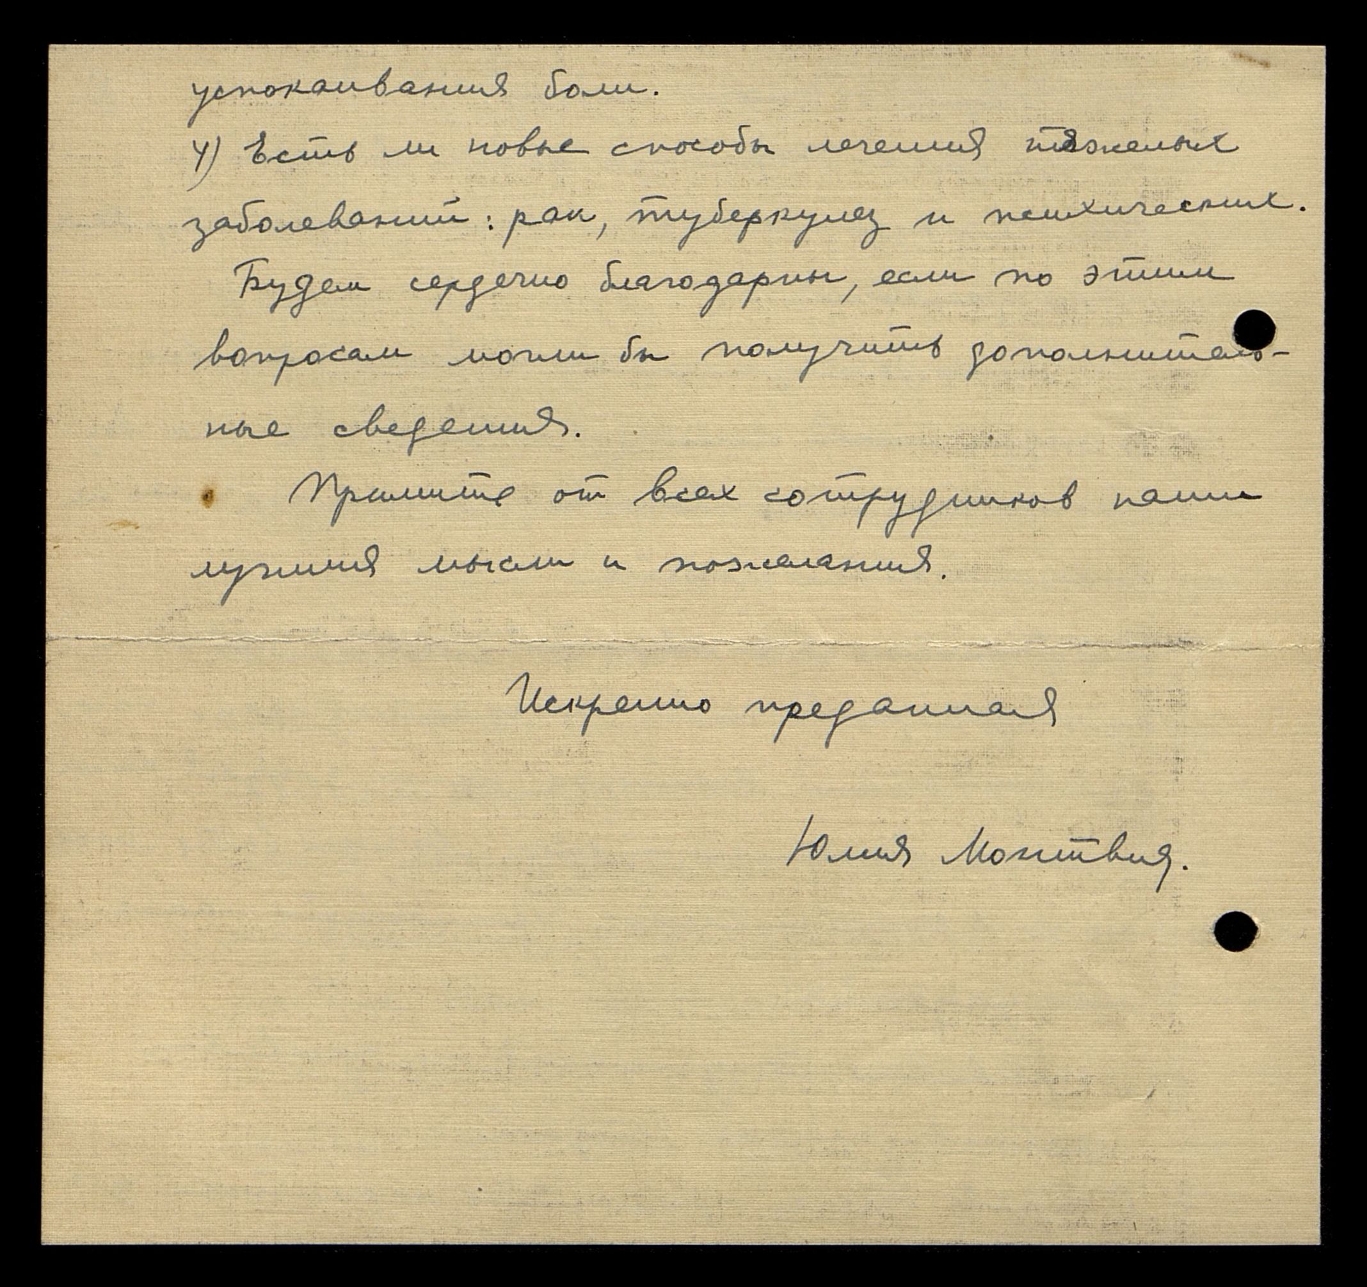 успокаивания боли.
4) Есть ли новые способы лечения тяжелых
заболеваний: рак, туберкулез и психических.
Будем сердечно благодарны, если по этим
вопросам могли бы получить дополнитель-
ные сведения.
Примите от всех сотрудников наши
лучшия мысли и пожелания.
Искренно преданная
Юлия Монтвид.